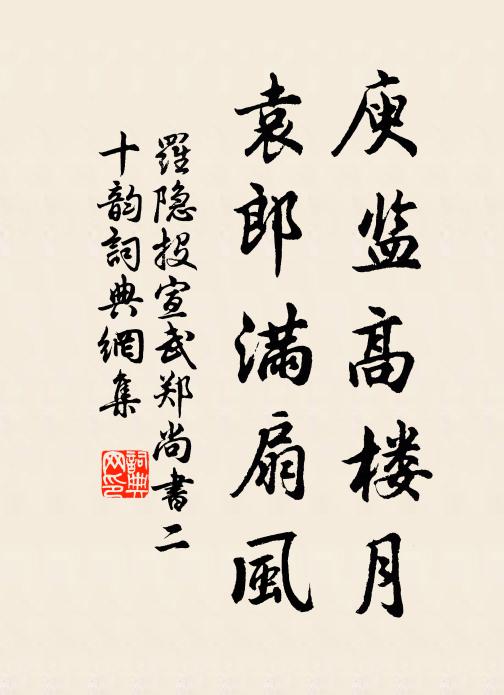 庾监高楼月
袁郎满扇風
羅隐投宣武郑尚書二
十韵詞典網集
詞典网印